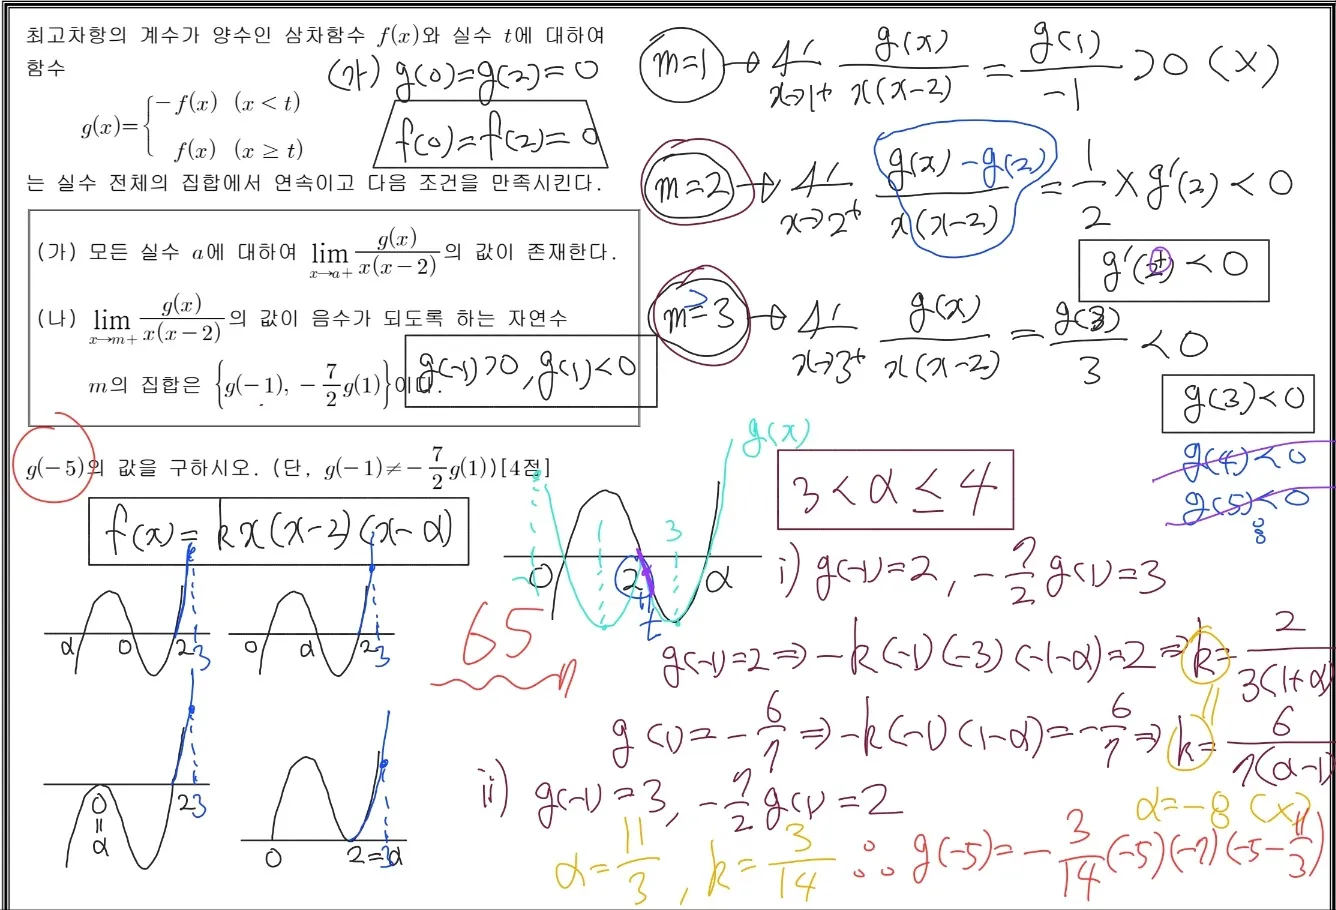 최고차항의 계수가 양수인 삼차함수 f(x)와 실수 t에 대하여
함수
g(x)={ -f(x) (x < t)
f(x) (x ≥ t)
는 실수 전체의 집합에서 연속이고 다음 조건을 만족시킨다.
(가) g(0)=g(2)=0
f(0)=f(2)=0
(가) 모든 실수 a에 대하여 lim x→a+ g(x)/x(x-2) 의 값이 존재한다.
(나) lim x→m+ g(x)/x(x-2) 의 값이 음수가 되도록 하는 자연수
m의 집합은 {g(-1), -7/2 g(1)}이다.
g(-1)>0, g(1)<0
g(-5)의 값을 구하시오. (단, g(-1)≠-7/2 g(1))[4점]
f(x)=kx(x-2)(x-α)
α 0 2 3
0 α 2 3
0 = α 2 3
0 2=α 3
m=1 → lim x→1+ g(x)/x(x-2) = g(1)/-1 >0 (X)
m=2 → lim x→2+ g(x)-g(2)/x(x-2) = 1/2 × g'(2) < 0
g'(2+) < 0
m≥3 → lim x→3+ g(x)/x(x-2) = g(3)/3 < 0
g(3)<0
g(4)<0
g(5)<0
g(x)
0 1 2 3 α
t
3 < α ≤ 4
i) g(-1)=2, -7/2 g(1)=3
g(-1)=2 ⇒ -k(-1)(-3)(-1-α)=2 ⇒ k= 2/3(1+α)
g(1)=-6/7 ⇒ -k(-1)(1-α)=-6/7 ⇒ k= 6/7(α-1)
α=-8 (X)
ii) g(-1)=3, -7/2 g(1)=2
α=11/3, k=3/14 ∴ g(-5)=-3/14(-5)(-7)(-5-11/3)
65